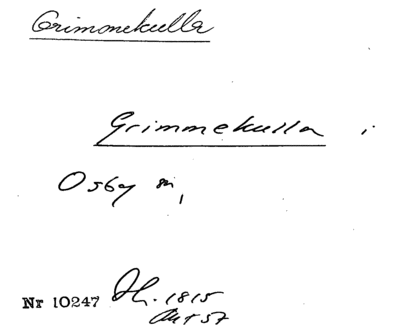 Grimonekulla
Grimmekulla i
Osby sn,
Nr 10247 Jh. 1815
Akt 57